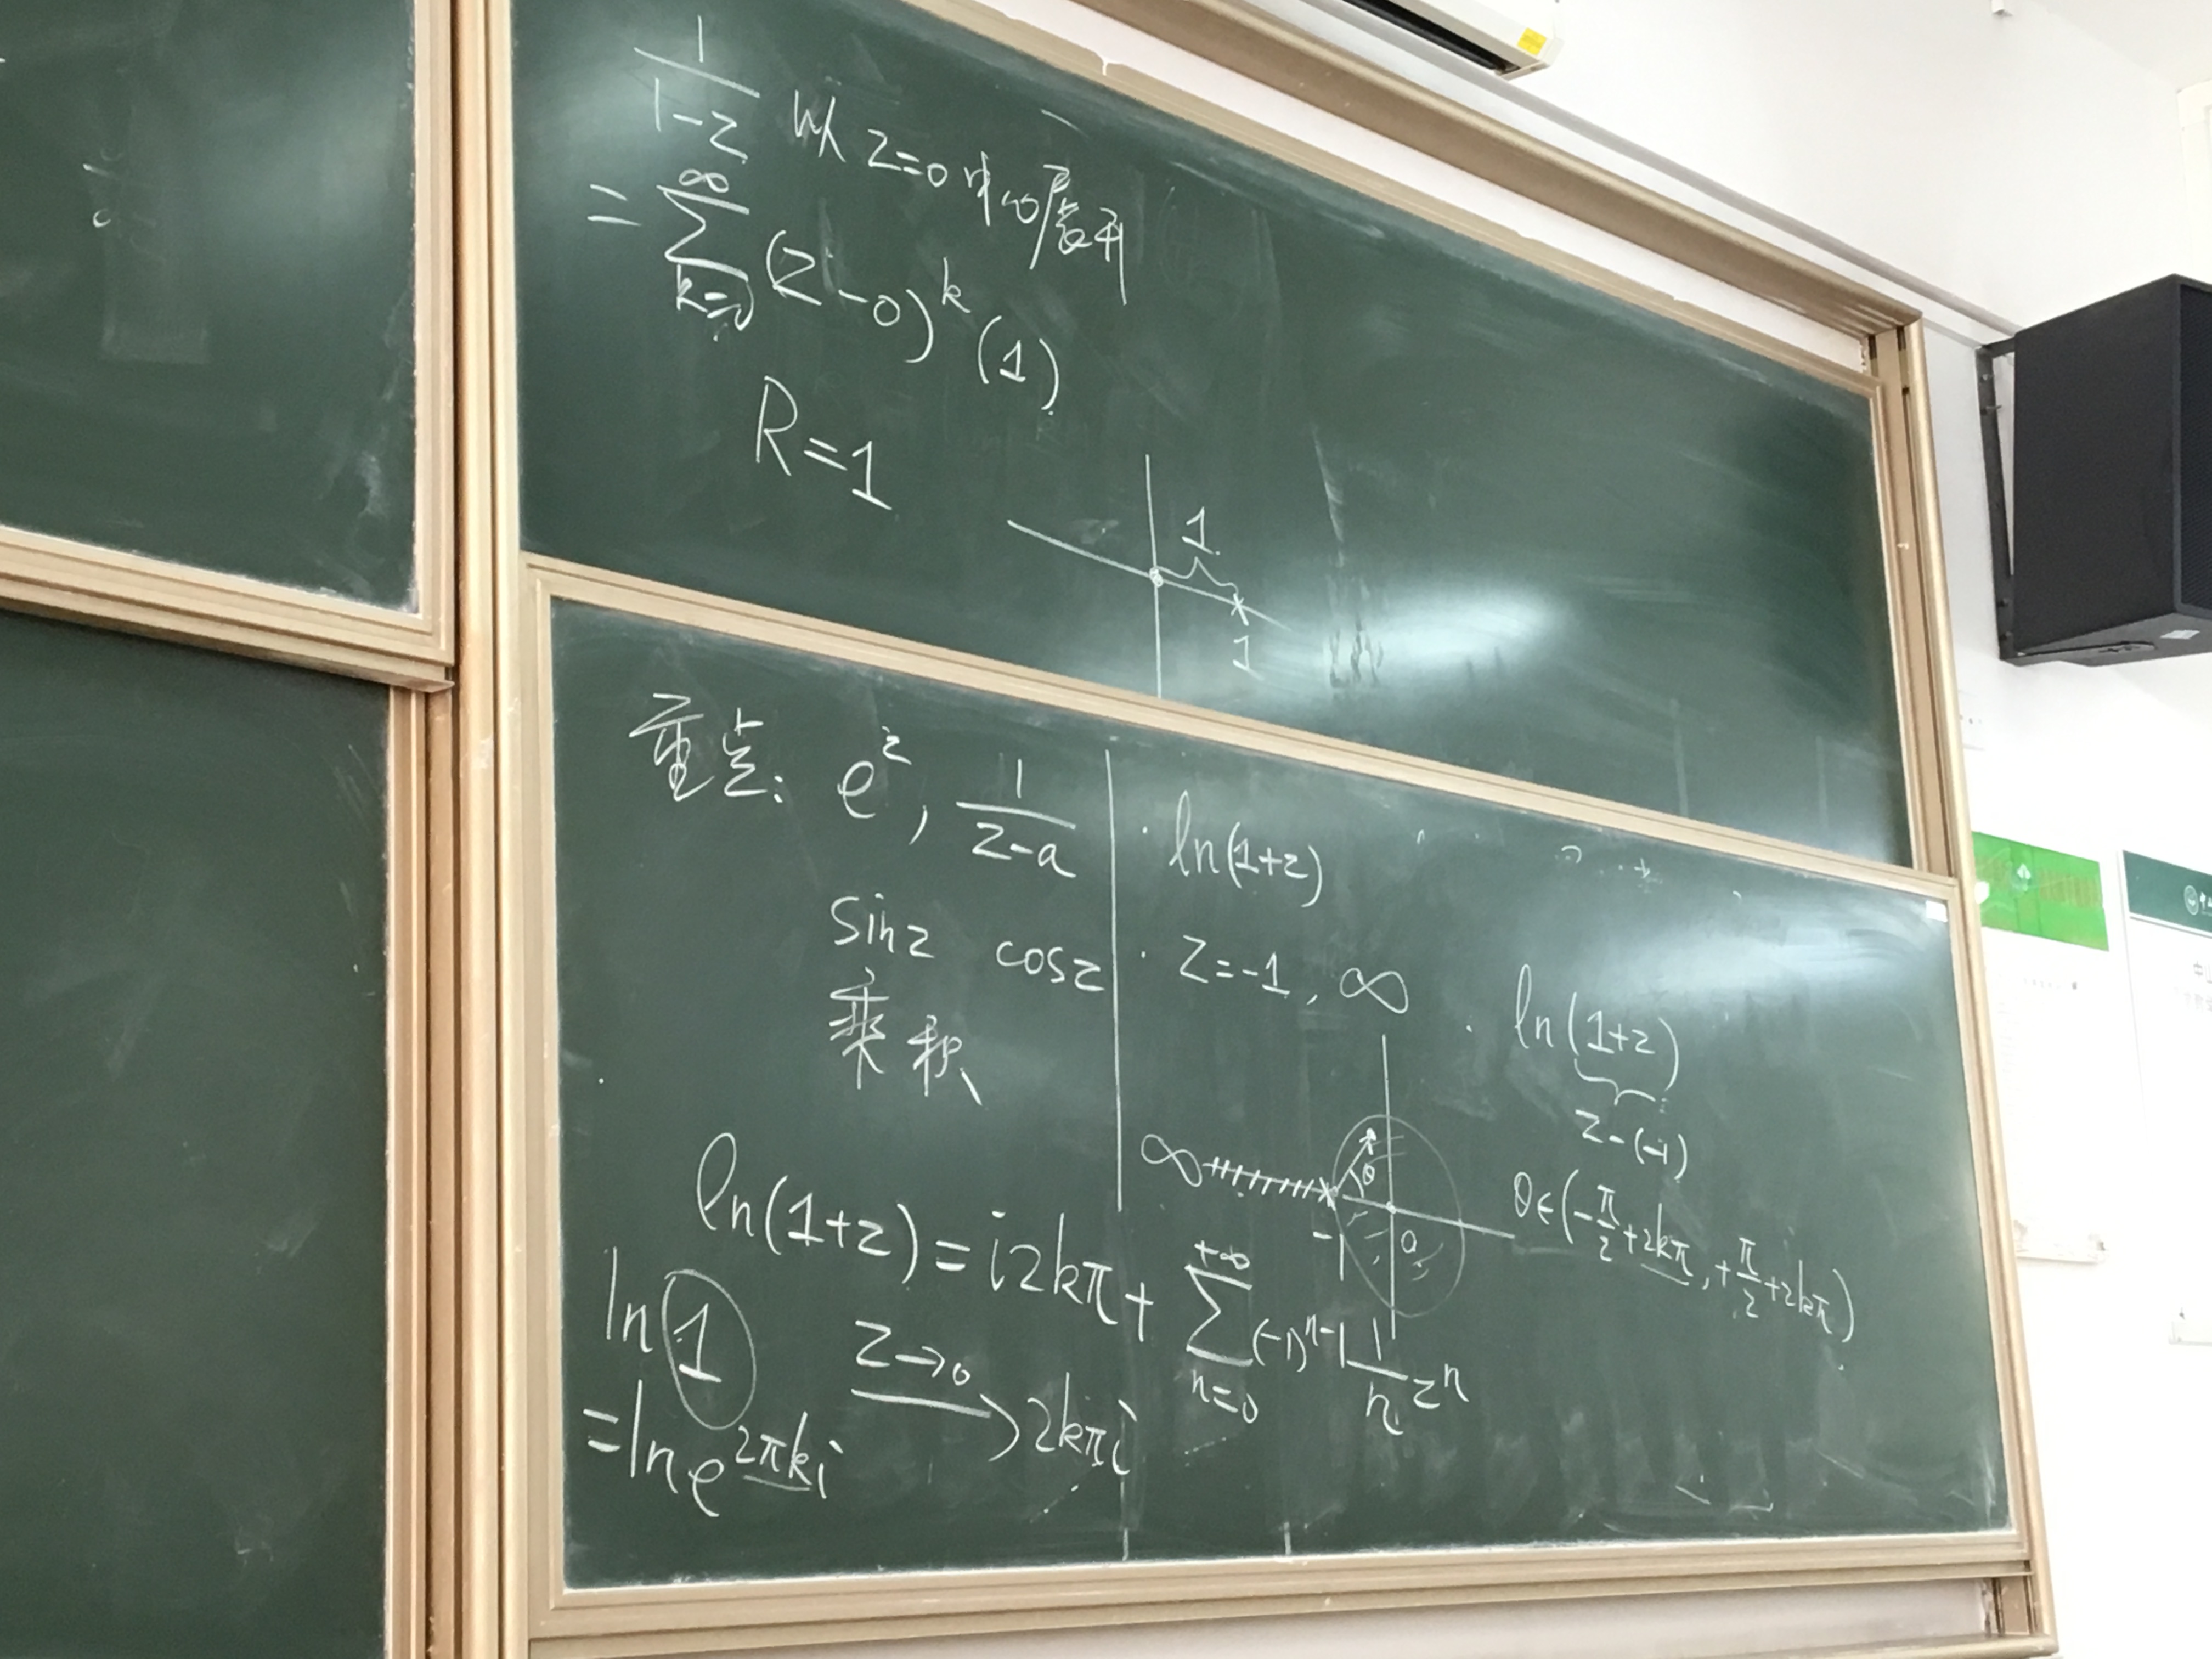 1/(1-z) 以 z=0 中心展开
= ∑_{k=0}^{∞} (z-0)^k (1)
R=1
1
1
重点: e^z, 1/(z-a)
sinz cosz
乘积
· ln(1+z)
· z=-1, ∞
· ln(1+z)
z-(-1)
θ∈(-π/2+2kπ, +π/2+2kπ)
∞ θ
-1 0
ln(1+z) = i2kπ + ∑_{n=0}^{+∞} (-1)^{n-1} 1/n z^n
z→0 → 2kπi
ln 1
= ln e^{2πki}